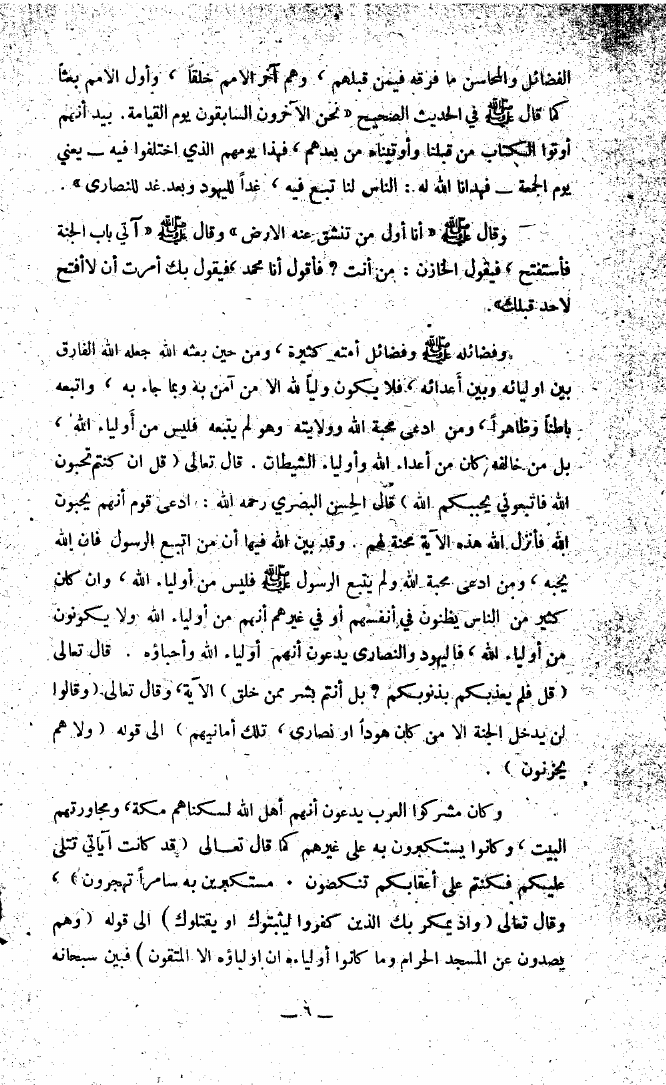 الفضائل والمحاسن ما فرقه فيمن قبلهم ، وهم آخر الامم خلقاً ، وأول الامم بعثاً
كما قال ﷺ في الحديث الصحيح « نحن الآخرون السابقون يوم القيامة . بيد أنهم
أوتوا الكتاب من قبلنا وأوتيناه من بعدهم ، فهذا يومهم الذي اختلفوا فيه — يعني
يوم الجمعة — فهدانا الله له : الناس لنا تبع فيه ، غداً لليهود وبعد غد للنصارى » .
وقال ﷺ « أنا أول من تنشق عنه الارض » وقال ﷺ « آتي باب الجنة
فأستفتح ، فيقول الخازن : من أنت ؟ فأقول أنا محمد ، فيقول بك أمرت أن لا أفتح
لاحد قبلك » .
وفضائله ﷺ وفضائل أمته كثيرة ، ومن حين بعثه الله جعله الله الفارق
بين اوليائه وبين أعدائه ، فلا يكون ولياً لله الا من آمن به وبما جاء به ، واتبعه
باطناً وظاهراً ، ومن ادعى محبة الله وولايته وهو لم يتبعه فليس من أولياء الله ،
بل من خالفه كان من أعداء الله وأولياء الشيطات . قال تعالى ( قل ان كنتم تحبون
الله فاتبعوني يحببكم الله ) قال الحسن البصري رحمه الله : ادعى قوم أنهم يحبون
الله فأنزل الله هذه الآية محنة لهم . وقد بين الله فيها أن من اتبع الرسول فان الله
يحبه ، ومن ادعى محبة الله ولم يتبع الرسول ﷺ فليس من أولياء الله ، وان كان
كثير من الناس يظنون في أنفسهم أو في غيرهم أنهم من أولياء الله ولا يكونون
من أولياء الله ، فاليهود والنصارى يدعون أنهم أولياء الله وأحباؤه . قال تعالى
( قل فلم يعذبكم بذنوبكم ؟ بل أنتم بشر ممن خلق ) الآية ، وقال تعالى ( وقالوا
لن يدخل الجنة الا من كان هوداً او نصارى ، تلك أمانيهم ) الى قوله ( ولا هم
يحزنون ) .
وكان مشركوا العرب يدعون أنهم أهل الله لسكناهم مكة ، ومجاورتهم
البيت ، وكانوا يستكبرون به على غيرهم كما قال تعالى ( قد كانت آياتي تتلى
عليكم فكنتم على أعقابكم تنكصون . مستكبرين به سامراً تهجرون ) ،
وقال تعالى ( واذ يمكر بك الذين كفروا ليثبتوك او يقتلوك ) الى قوله ( وهم
يصدون عن المسجد الحرام وما كانوا أولياءه ان اولياؤه الا المتقون ) فبين سبحانه
— ٦ —